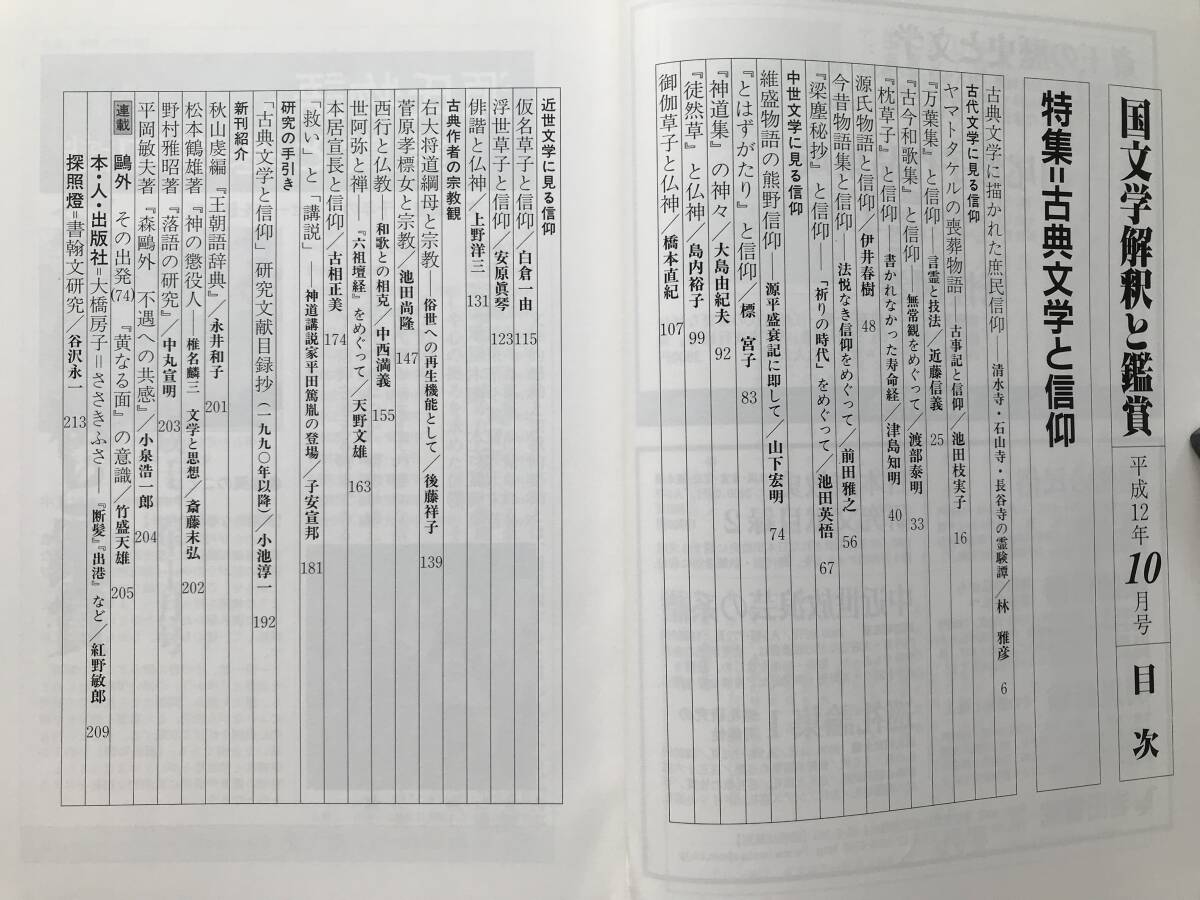 国文学解釈と鑑賞 平成12年10月号 目次
特集=古典文学と信仰
古典文学に描かれた庶民信仰——清水寺・石山寺・長谷寺の霊験譚/林 雅彦 6
古代文学に見る信仰
ヤマトタケルの喪葬物語——古事記と信仰/池田枝実子 16
『万葉集』と信仰——言霊と技法/近藤信義 25
『古今和歌集』と信仰——無常観をめぐって/渡部泰明 33
『枕草子』と信仰——書かれなかった寿命経/津島知明 40
源氏物語と信仰/伊井春樹 48
今昔物語集と信仰 法悦なき信仰をめぐって/前田雅之 56
『梁塵秘抄』と信仰 「祈りの時代」をめぐって/池田英悟 67
中世文学に見る信仰
維盛物語の熊野信仰——源平盛衰記に即して/山下宏明 74
『とはずがたり』と信仰/標 宮子 83
『神道集』の神々/大島由紀夫 92
『徒然草』と仏神/島内裕子 99
御伽草子と仏神/橋本直紀 107
近世文学に見る信仰
仮名草子と信仰/白倉一由 115
浮世草子と信仰/安原眞琴 123
俳諧と仏神/上野洋三 131
古典作者の宗教観
右大将道綱母と宗教 俗世への再生機能として/後藤祥子 139
菅原孝標女と宗教/池田尚隆 147
西行と仏教——和歌との相克/中西満義 155
世阿弥と禅——『六祖壇経』をめぐって/天野文雄 163
本居宣長と信仰/古相正美 174
「救い」と「講説」——神道講説家平田篤胤の登場/子安宣邦 181
研究の手引き
「古典文学と信仰」研究文献目録抄(一九九〇年以降)/小池淳一 192
新刊紹介
秋山虔編『王朝語辞典』/永井和子 201
松本鶴雄著『神の懲役人——椎名麟三 文学と思想』/斎藤末弘 202
野村雅昭著『落語の研究』/中丸宣明 203
平岡敏夫著『森鷗外 不遇への共感』/小泉浩一郎 204
連載 鷗外 その出発(74)『黄なる面』の意識/竹盛天雄 205
本・人・出版社=大橋房子=ささきふさ——『断髪』『出港』など/紅野敏郎 209
探照燈=書翰文研究/谷沢永一 213